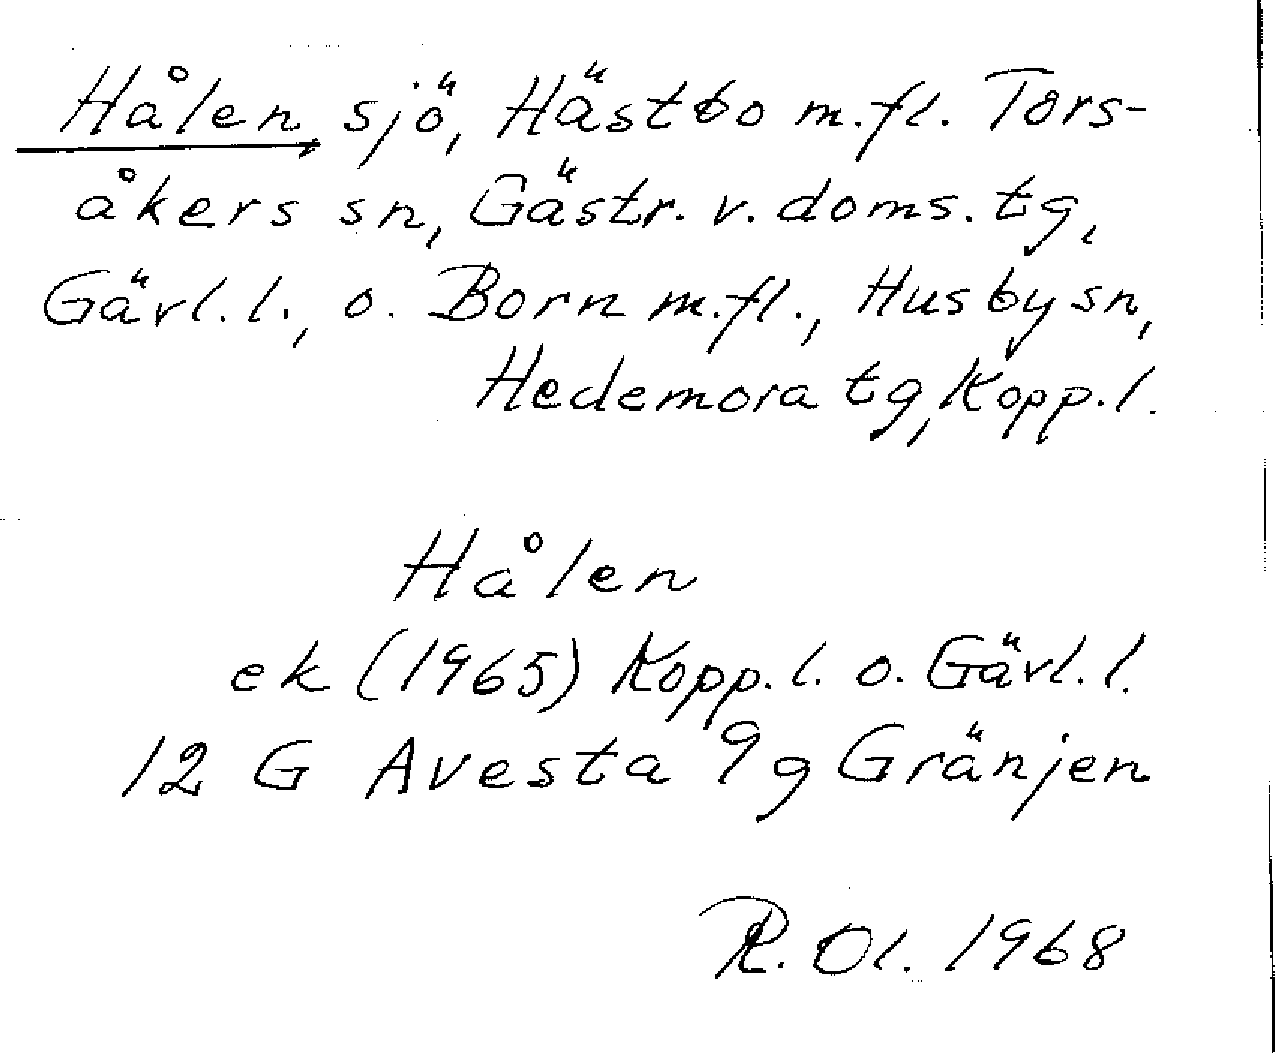 Hålen, sjö, Hästbo m.fl. Tors-
åkers sn, Gästr. v. doms. tg,
Gävl. l., o. Born m.fl., Husby sn,
Hedemora tg, Kopp. l.
Hålen
ek (1965) Kopp. l. o. Gävl. l.
12 G Avesta 9g Gränjen
R. Ol. 1968